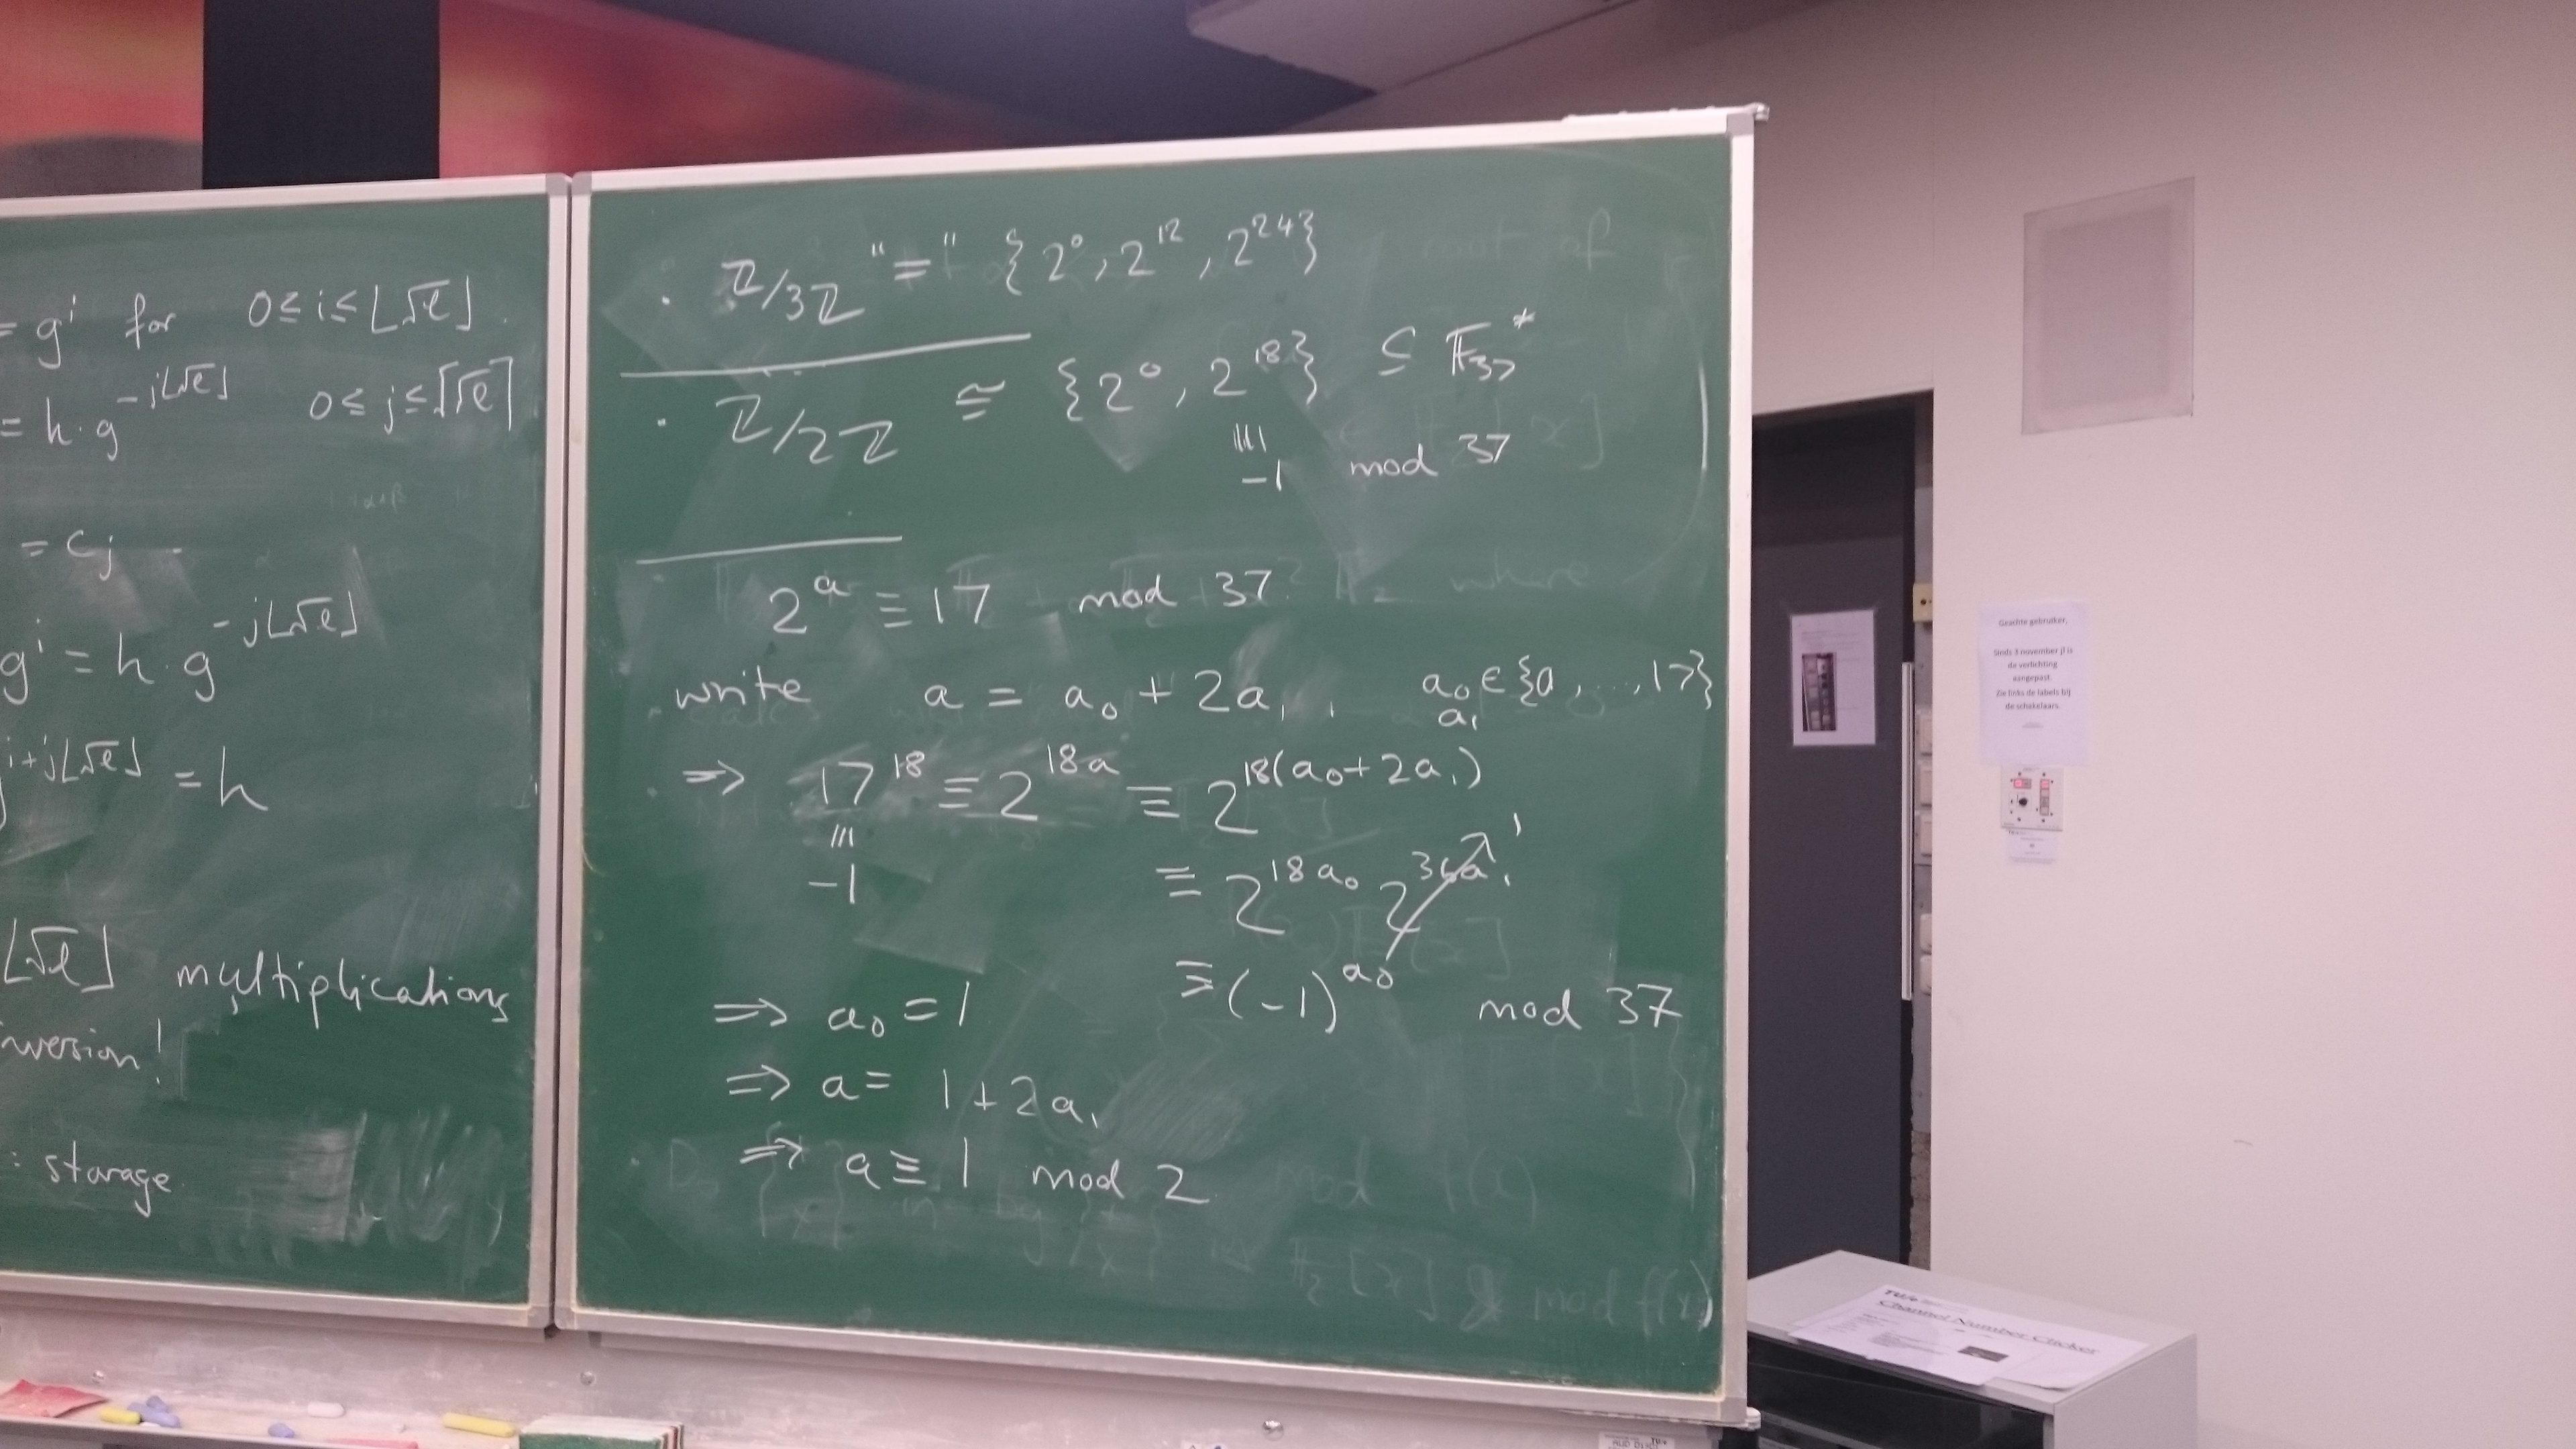 = gⁱ for 0≤i≤⌊√ℓ⌋.
= h·g^{-j⌊√ℓ⌋} 0≤j≤⌈√ℓ⌉
= cⱼ
gⁱ = h·g^{-j⌊√ℓ⌋}
^{i+j⌊√ℓ⌋} = h
⌊√ℓ⌋ multiplications
inversion!
: storage
· ℤ/3ℤ "=" {2⁰, 2¹², 2²⁴}
· ℤ/2ℤ ≅ {2⁰, 2¹⁸} ⊆ 𝔽₃₇*
≡
-1 mod 37
2^a ≡ 17 mod 37
write a = a₀ + 2a₁, a₀ ∈ {0, ..., 17}
a₁
⇒ 17¹⁸ ≡ 2^{18a} ≡ 2^{18(a₀+2a₁)}
≡
-1 ≡ 2^{18a₀} 2^{36a₁} 1
≡ (-1)^{a₀} mod 37
⇒ a₀ = 1
⇒ a = 1 + 2a₁
⇒ a ≡ 1 mod 2
Geachte gebruiker,
Sinds 3 november jl is
de verlichting
aangepast.
Zie links de labels bij
de schakelaars.
TU/e
Channel Number Clicker